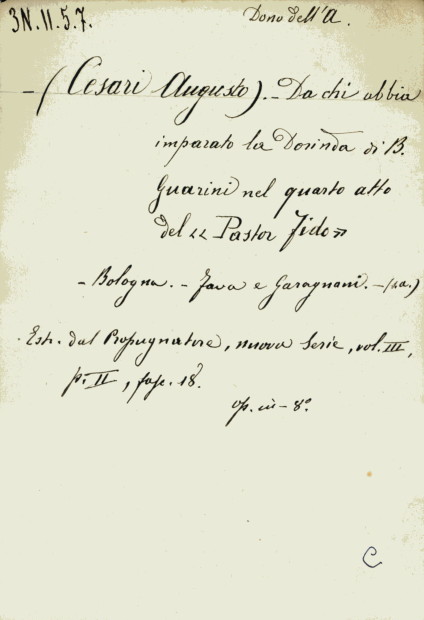 3N.11.5.7.
Dono dell'A.
- (Cesari Augusto). - Da chi abbia
imparato la Dorinda di B.
Guarini nel quarto atto
del « Pastor Fido »
- Bologna. - Fava e Garagnani. - (s.a.)
. Estr. dal Propugnatore, nuova Serie, vol. III,
p. II, fasc. 18°.
op. in - 8°.
C